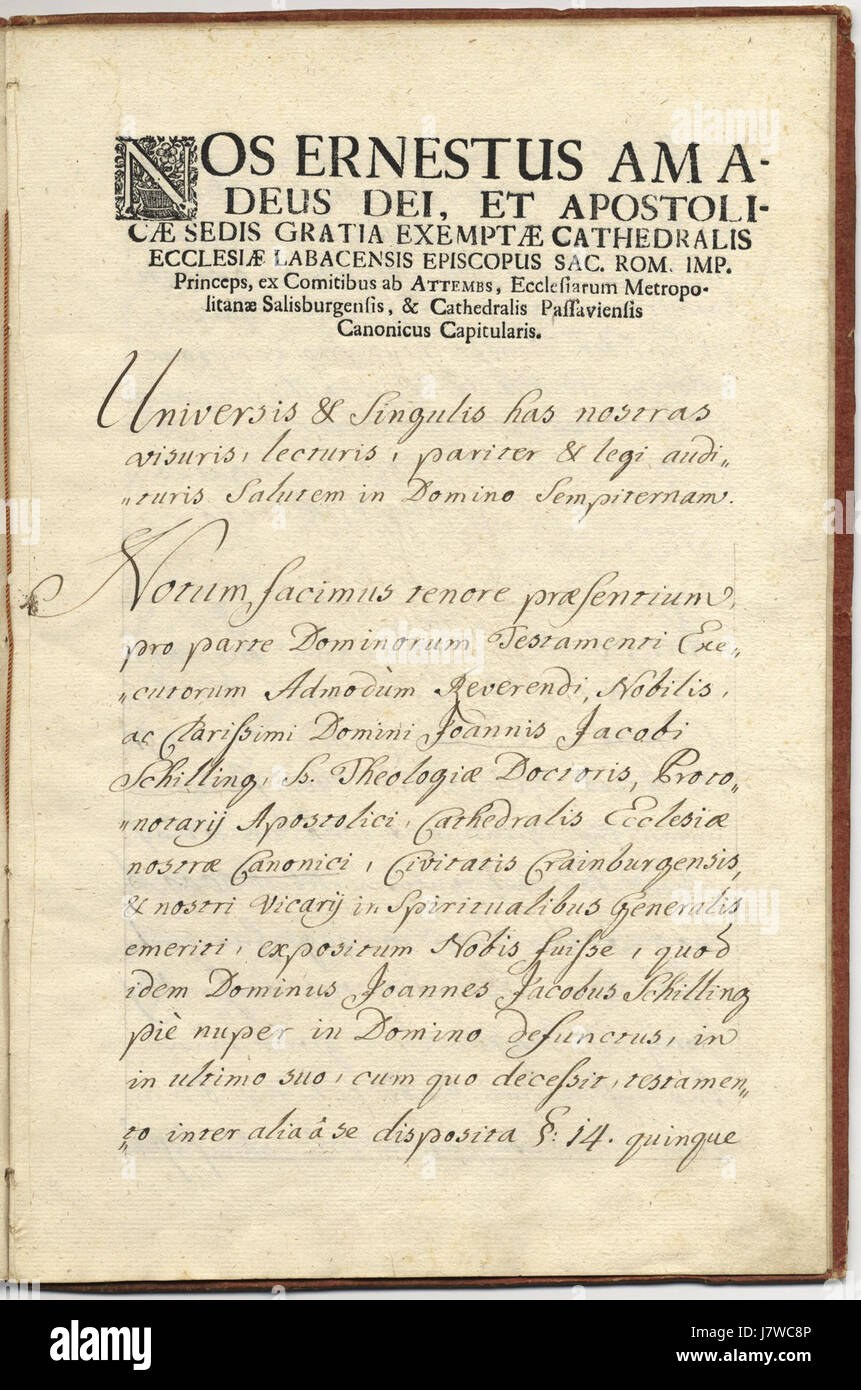 NOS ERNESTUS AMA-
DEUS DEI, ET APOSTOLI-
CÆ SEDIS GRATIA EXEMPTÆ CATHEDRALIS
ECCLESIÆ LABACENSIS EPISCOPUS SAC. ROM. IMP.
Princeps, ex Comitibus ab ATTEMBS, Ecclesiarum Metropo-
litanæ Salisburgensis, & Cathedralis Passaviensis
Canonicus Capitularis.
Universis & Singulis has nostras
visuris, lecturis, pariter & legi audi„
„turis Salutem in Domino Sempiternam.
Notum facimus tenore præsentium,
pro parte Dominorum Testamenti Exe„
„cutorum Admodùm Reverendi, Nobilis,
ac Clarissimi Domini Joannis Jacobi
Schilling, Ss. Theologiæ Doctoris, Proto„
„notarij Apostolici, Cathedralis Ecclesiæ
nostræ Canonici, Civitatis Crainburgensis,
& nostri Vicarij in Spiritualibus Generalis
emeriti, expositum Nobis fuisse, quod
idem Dominus Joannes Jacobus Schilling
piè nuper in Domino defunctus, in
in ultimo suo, cum quo decessit, testamen„
„to inter alia â se disposita §: 14. quinque
alamy
Image ID: J7WC8P
www.alamy.com